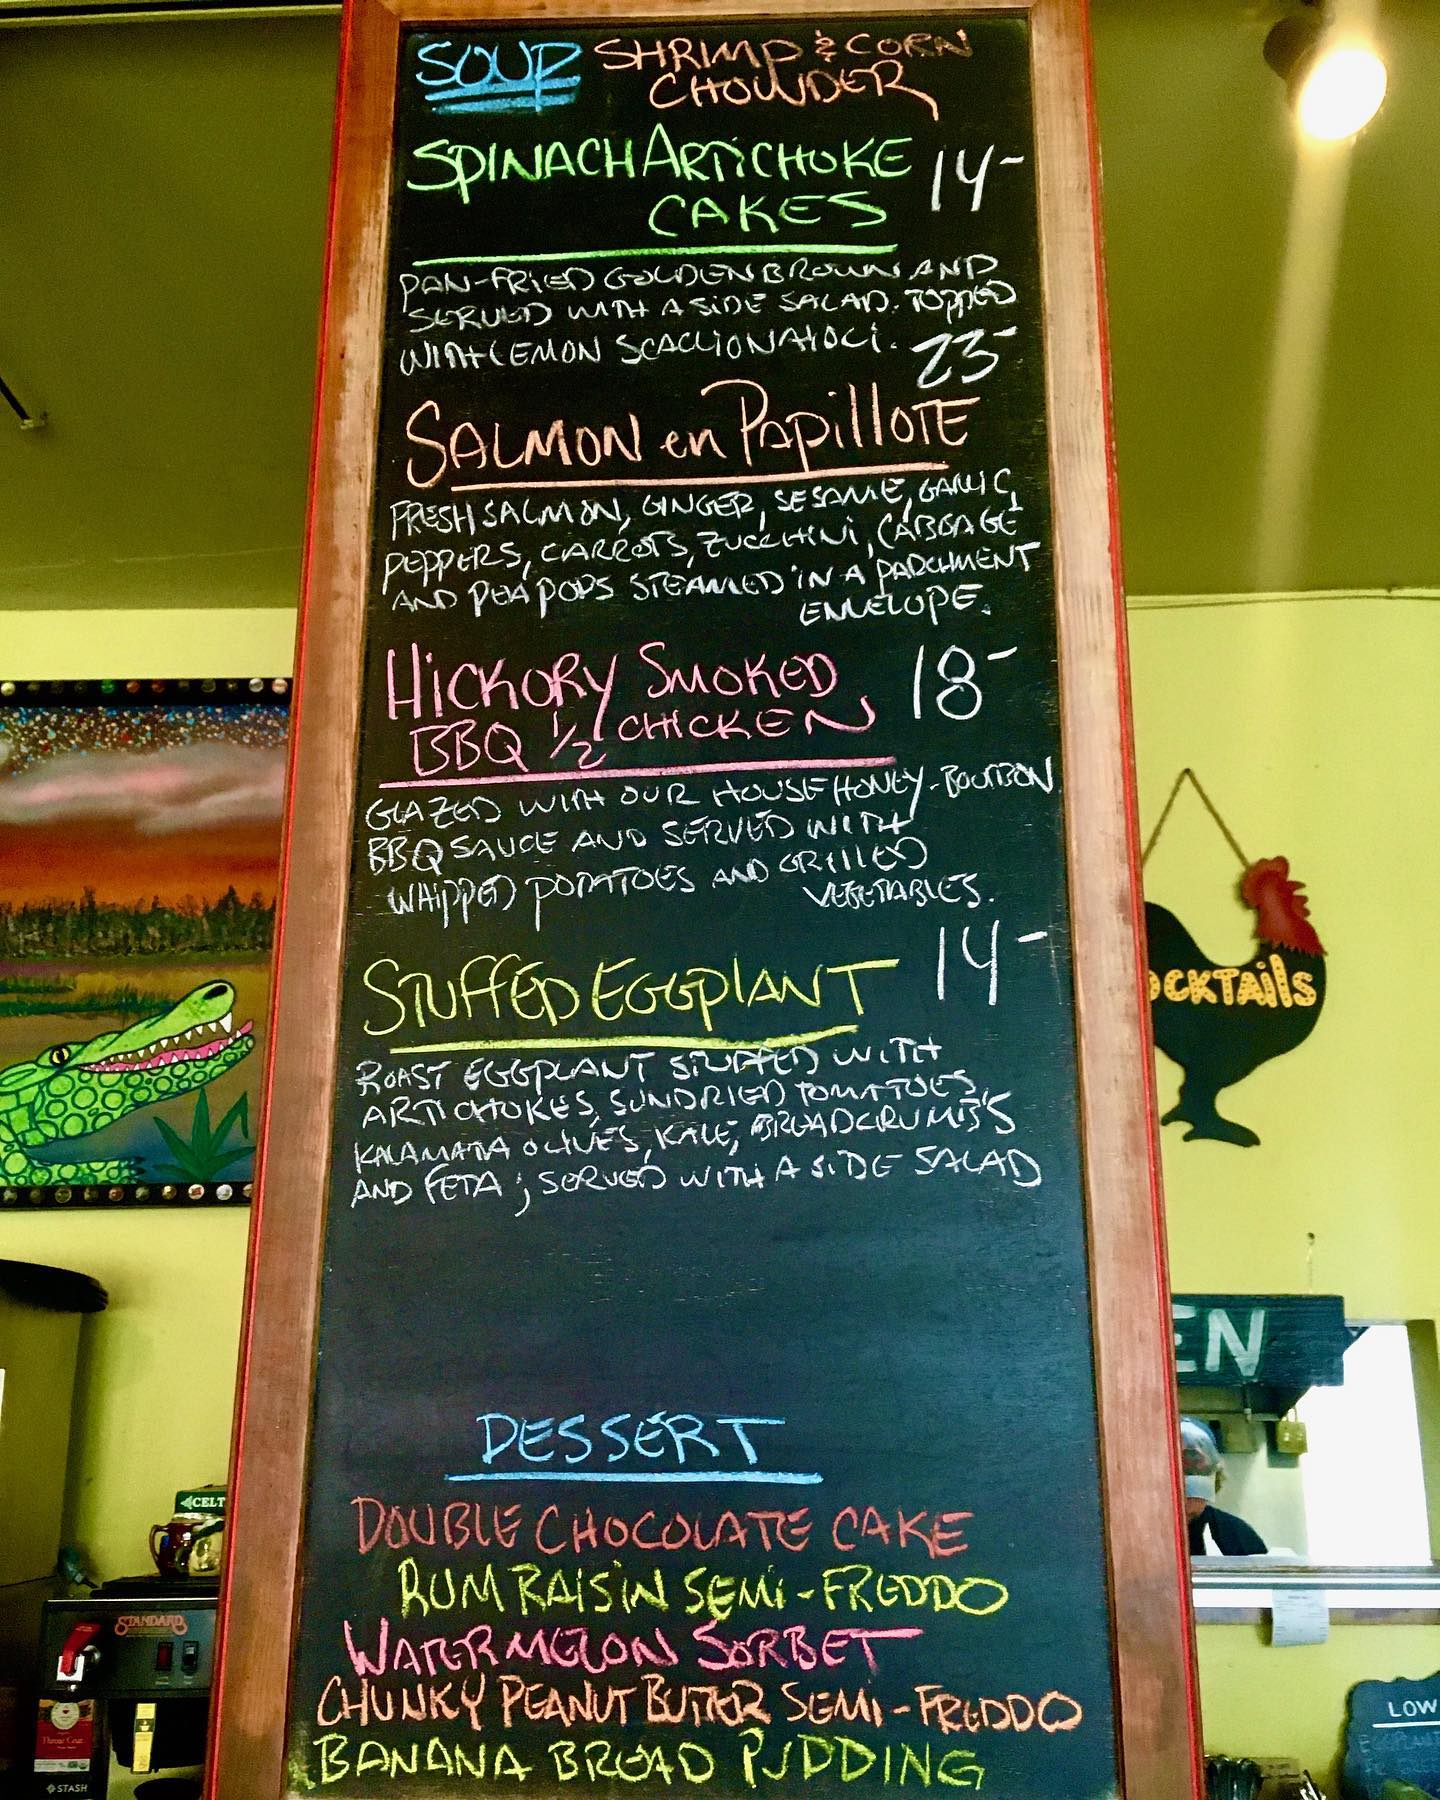 SOUP SHRIMP & CORN
CHOWDER
SPINACH ARTICHOKE 14-
CAKES
PAN-FRIED GOLDEN BROWN AND
SERVED WITH A SIDE SALAD. TOPPED
WITH LEMON SCALLION AIOLI.
23-
SALMON en PAPILLOTE
FRESH SALMON, GINGER, SESAME, GARLIC,
PEPPERS, CARROTS, ZUCCHINI, CABBAGE
AND PEA PODS STEAMED IN A PARCHMENT
ENVELOPE.
HICKORY SMOKED 18-
BBQ 1/2 CHICKEN
GLAZED WITH OUR HOUSE HONEY-BOURBON
BBQ SAUCE AND SERVED WITH
WHIPPED POTATOES AND GRILLED
VEGETABLES.
STUFFED EGGPLANT 14-
ROAST EGGPLANT STUFFED WITH
ARTICHOKES, SUNDRIED TOMATOES,
KALAMATA OLIVES, KALE, BREADCRUMBS
AND FETA; SERVED WITH A SIDE SALAD
DESSERT
DOUBLE CHOCOLATE CAKE
RUM RAISIN SEMI-FREDDO
WATERMELON SORBET
CHUNKY PEANUT BUTTER SEMI-FREDDO
BANANA BREAD PUDDING
OCKTAILS
EN
CELT
STANDARD
Throat Coat
STASH
LOW